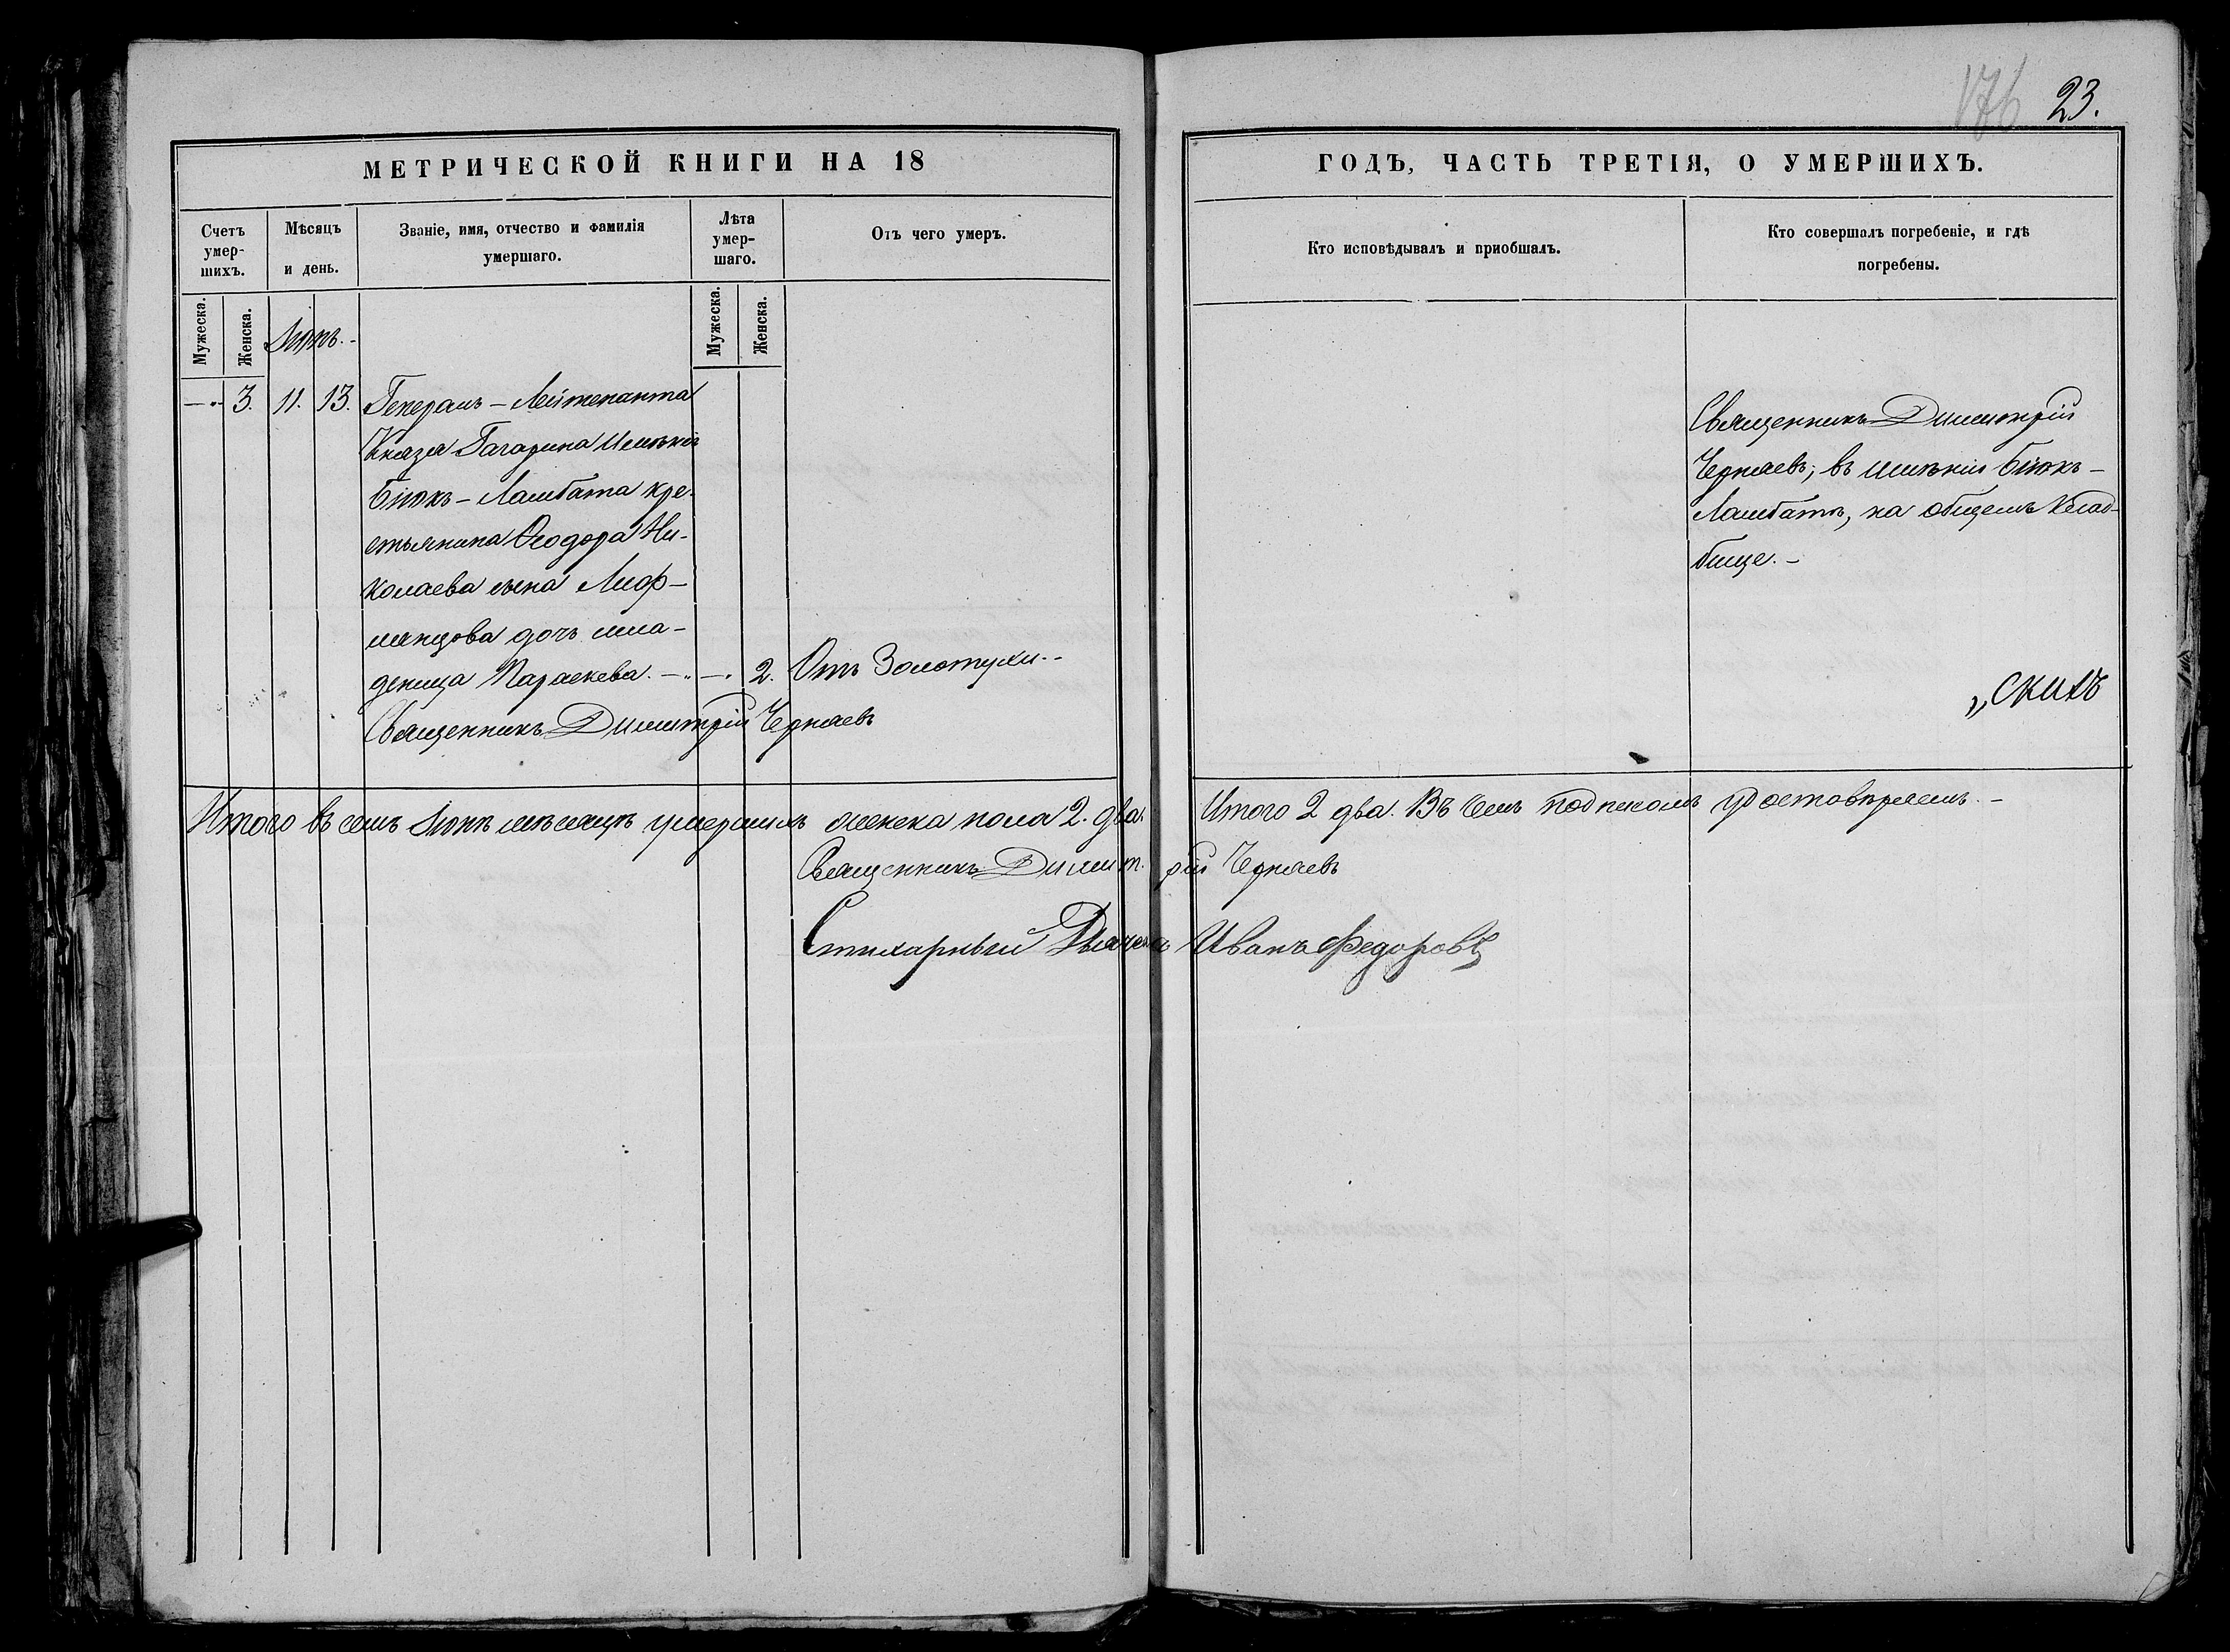 176 23.
МЕТРИЧЕСКОЙ КНИГИ НА 18
ГОДЪ, ЧАСТЬ ТРЕТІЯ, О УМЕРШИХЪ.
Счетъ умер-шихъ.
Мѣсяцъ и день.
Званіе, имя, отчество и фамилія умершаго.
Лѣта умер-шаго.
Отъ чего умеръ.
Кто исповѣдывалъ и пріобщалъ.
Кто совершалъ погребеніе, и гдѣ погребены.
Мужеска.
Женска.
Мужеска.
Женска.
Іюнь.-
3. 11. 13. Генералъ-Лейтенанта
Князя Гагарина имѣнія
Біюкъ-Ламбата кре-
стьянина Ѳеодора Ни-
колаева сына
дочь мла-
деница Параскева. - 2. Отъ Золотухи.-
Священникъ Димитрій Черняевъ
Священникъ Димитрій
Черняевъ; въ имѣніи Біюкъ-
Ламбатъ, на общемъ клад-
бище.-
„СКИХЪ
Итого въ семъ Іюнѣ мѣсяцѣ умершихъ женска пола 2. два. Итого 2 два. Въ чемъ подписомъ удостовѣряемъ.-
Священникъ Димитрій Черняевъ
Стихарный Дьячекъ Иванъ Федоровъ